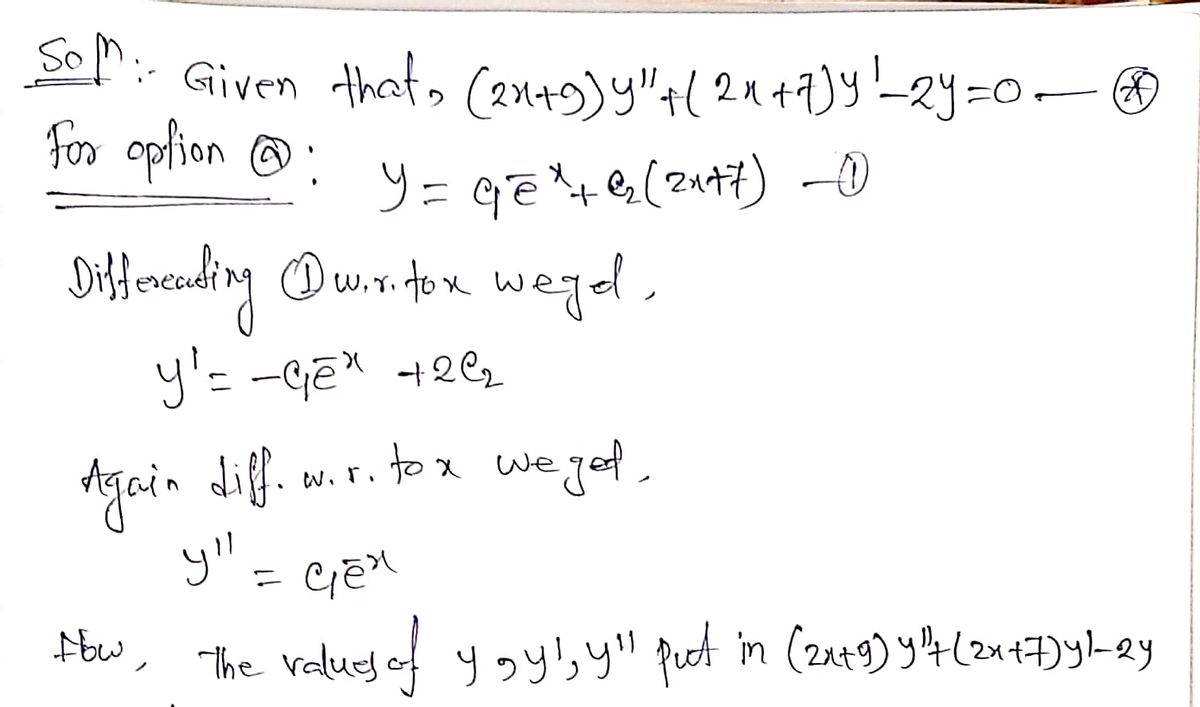 Soln:- Given that, (2x+9)y"+(2x+7)y'-2y=0 — ⊛
For option ⓐ: y = c₁e⁻ˣ + c₂(2x+7) —①
Differenciating ① w.r. to x we get,
y' = -c₁e⁻ˣ +2c₂
Again diff. w.r. to x we get,
y'' = c₁e⁻ˣ
Now, The values of y, y', y'' put in (2x+9)y''+(2x+7)y'-2y